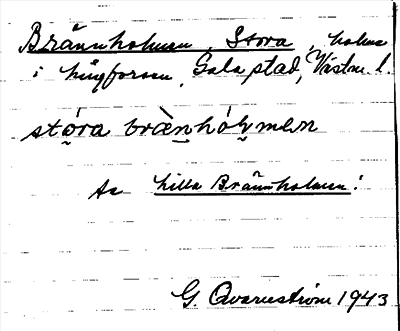 Brännholmen, Stora, holme
i Kungforsen, Sala stad, Västm. l.
stó̬ra bræ̀n̬hól̬men
Se Lilla Brännholmen!
G. Qvarnström 1943